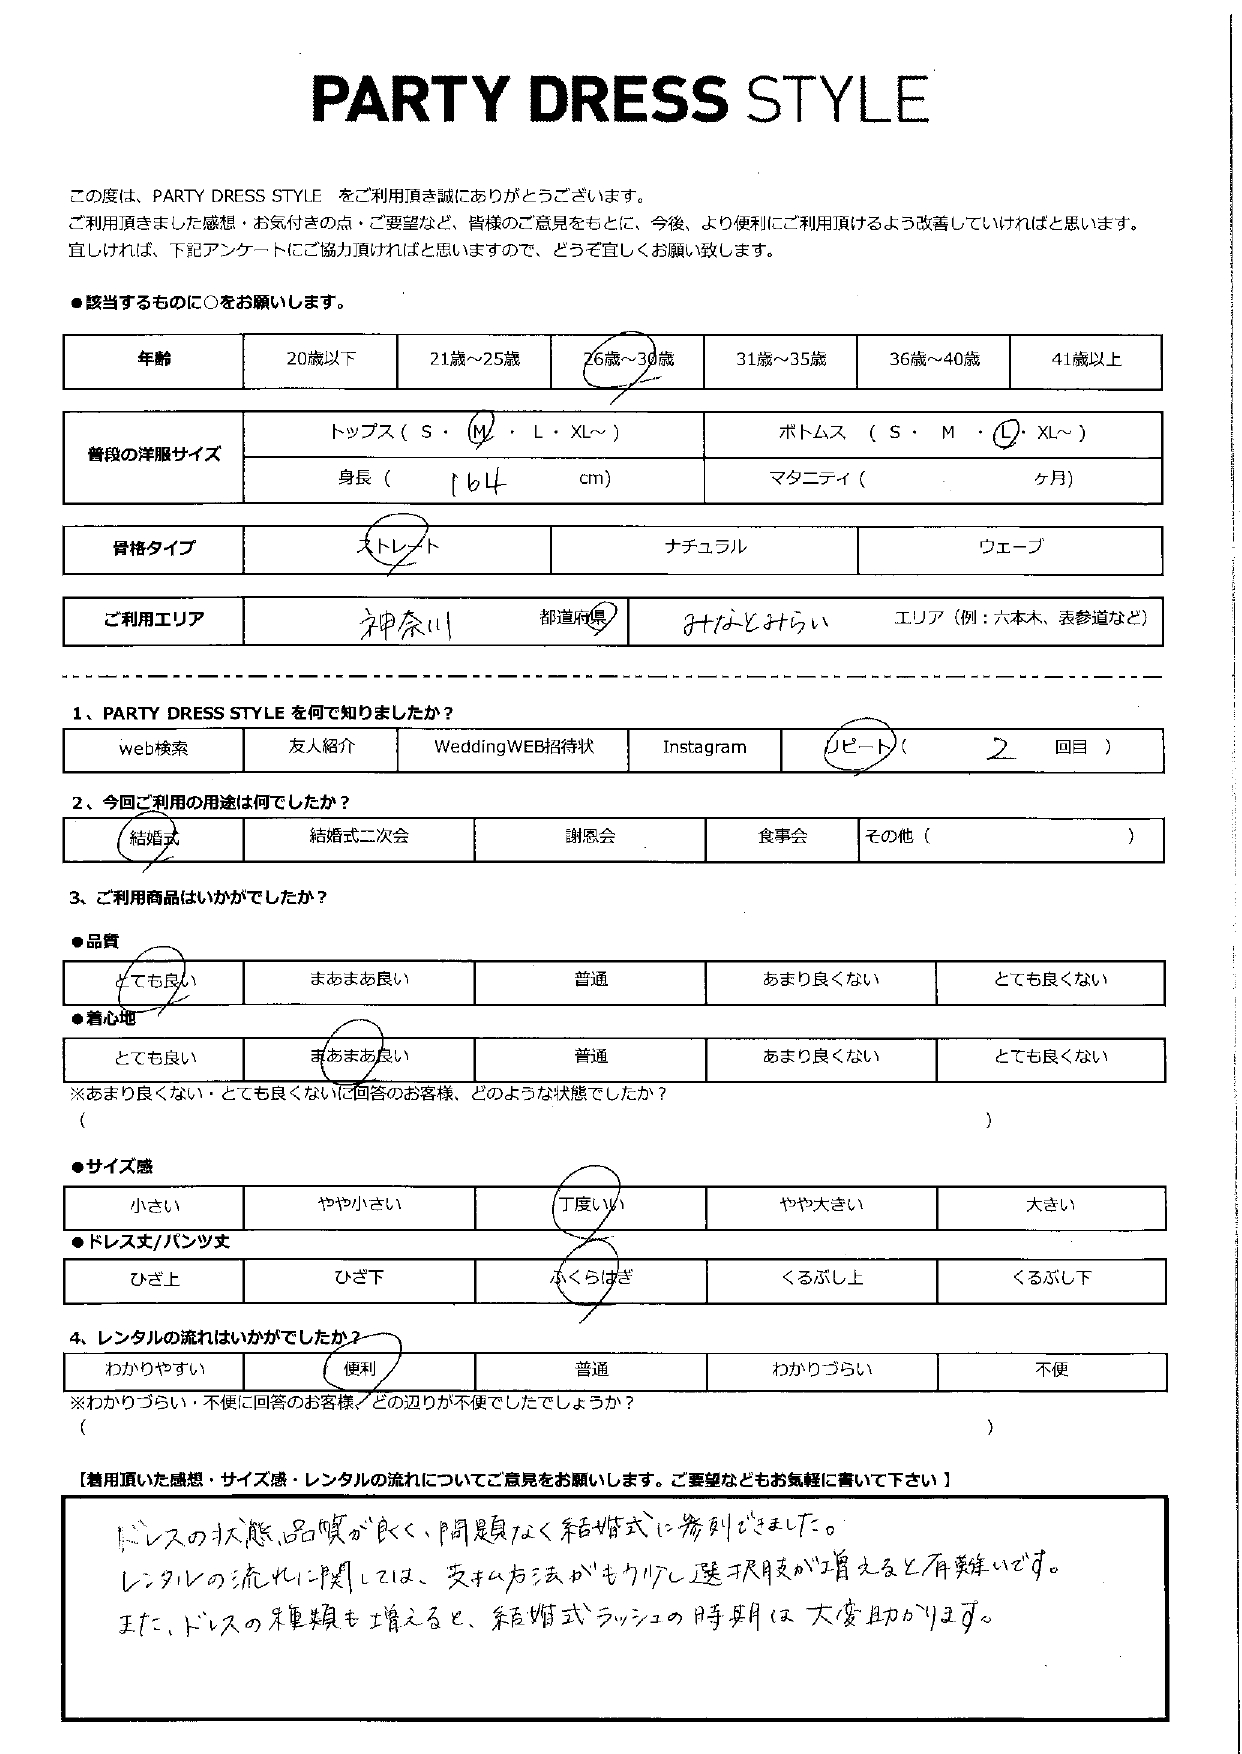 PARTY DRESS STYLE
この度は、PARTY DRESS STYLE をご利用頂き誠にありがとうございます。
ご利用頂きました感想・お気付きの点・ご要望など、皆様のご意見をもとに、今後、より便利にご利用頂けるよう改善していければと思います。
宜しければ、下記アンケートにご協力頂ければと思いますので、どうぞ宜しくお願い致します。
●該当するものに○をお願いします。
年齢 20歳以下 21歳～25歳 26歳～30歳 31歳～35歳 36歳～40歳 41歳以上
普段の洋服サイズ トップス ( S ・ M ・ L ・ XL～ ) ボトムス ( S ・ M ・ L ・ XL～ )
身長 ( 164 cm) マタニティ ( ヶ月)
骨格タイプ ストレート ナチュラル ウェーブ
ご利用エリア 神奈川 都道府県 みなとみらい エリア（例：六本木、表参道など）
1、PARTY DRESS STYLE を何で知りましたか？
web検索 友人紹介 WeddingWEB招待状 Instagram リピート ( 2 回目 )
2、今回ご利用の用途は何でしたか？
結婚式 結婚式二次会 謝恩会 食事会 その他 ( )
3、ご利用商品はいかがでしたか？
●品質
とても良い まあまあ良い 普通 あまり良くない とても良くない
●着心地
とても良い まあまあ良い 普通 あまり良くない とても良くない
※あまり良くない・とても良くないに回答のお客様、どのような状態でしたか？
( )
●サイズ感
小さい やや小さい 丁度いい やや大きい 大きい
●ドレス丈/パンツ丈
ひざ上 ひざ下 ふくらはぎ くるぶし上 くるぶし下
4、レンタルの流れはいかがでしたか？
わかりやすい 便利 普通 わかりづらい 不便
※わかりづらい・不便に回答のお客様、どの辺りが不便でしたでしょうか？
( )
【着用頂いた感想・サイズ感・レンタルの流れについてご意見をお願いします。ご要望などもお気軽に書いて下さい 】
ドレスの状態、品質が良く、問題なく結婚式に参列できました。
レンタルの流れに関しては、支払方法がもう少し選択肢が増えると有難いです。
また、ドレスの種類も増えると、結婚式ラッシュの時期は大変助かります。